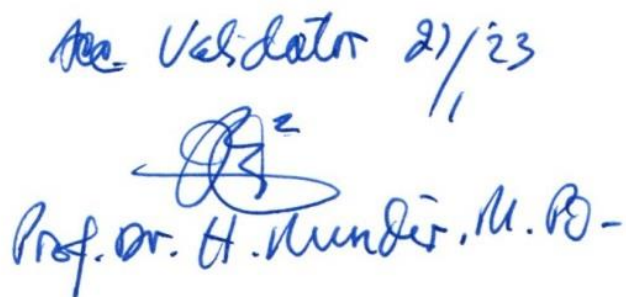 Acc Validator 27/1 23
Prof. Dr. H. Mundir, M. Pd.